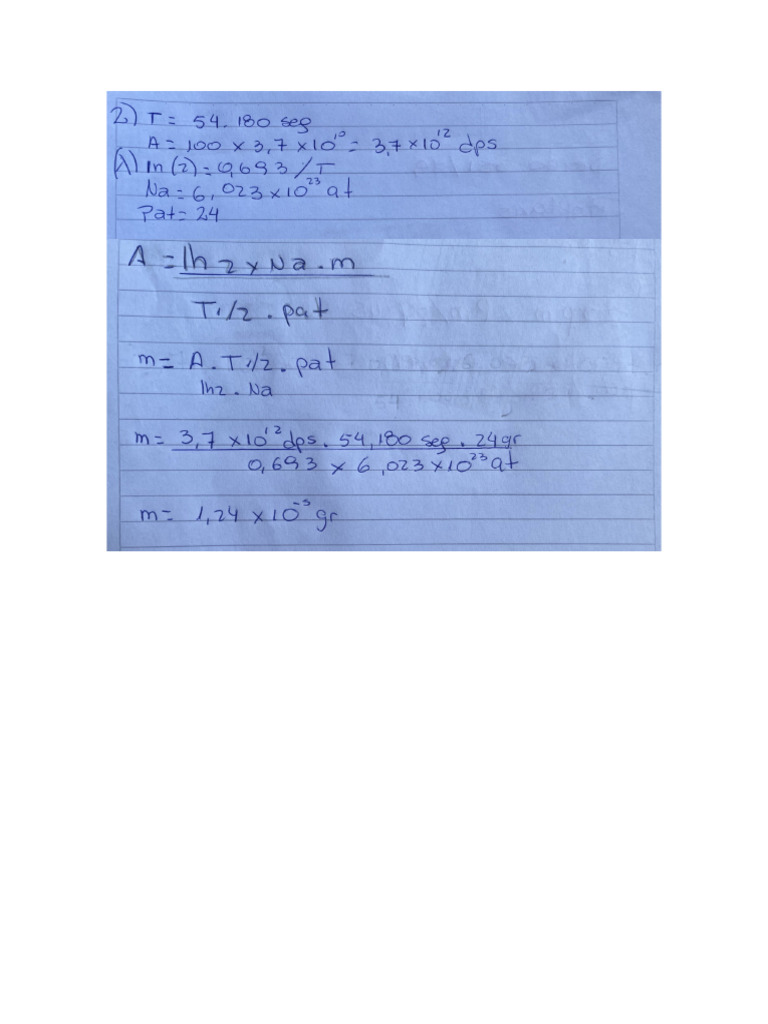 2) T = 54.180 seg
A = 100 x 3,7 x 10¹⁰ = 3,7 x 10¹² dps
(λ) ln (2) = 0,693 / T
Na = 6,023 x 10²³ at
Pat = 24
A = ln 2 x Na . m
T1/2 . pat
m = A . T1/2 . pat
ln2 . Na
m = 3,7 x 10¹² dps . 54,180 seg . 24gr
0,693 x 6,023 x 10²³ at
m = 1,24 x 10⁻⁵ gr